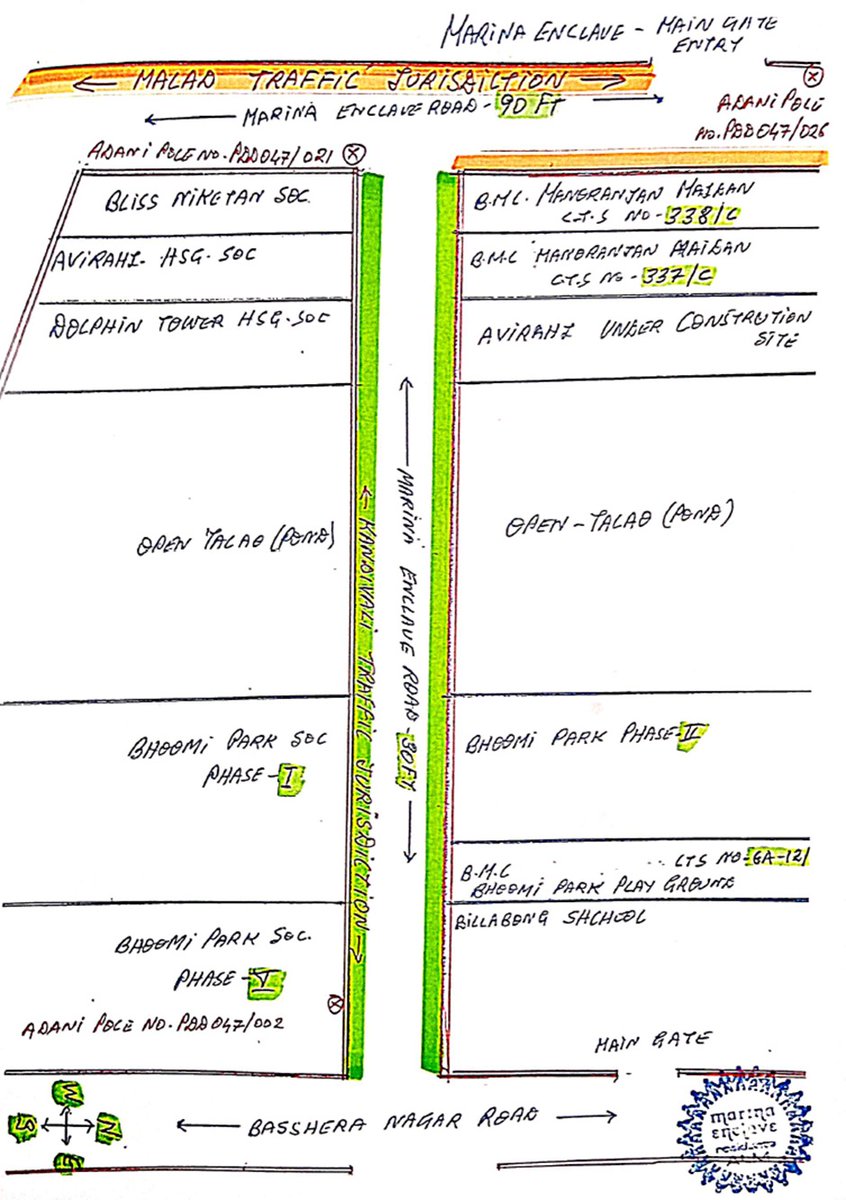 MARINA ENCLAVE - MAIN GATE
ENTRY
MALAD TRAFFIC JURISDICTION
MARINA ENCLAVE ROAD - 90 FT
ADANI POLE
NO. PBD047/026
ADANI POLE NO. PBD047/021
BLISS NIKETAN SOC.
B.M.C. MANORANJAN MAIDAN
C.T.S NO - 338/C
AVIRAHI - HSG - SOC
B.M.C MANORANJAN MAIDAN
C.T.S NO - 337/C
DOLPHIN TOWER HSG. SOC
AVIRAHI UNDER CONSTRUTION
SITE
OPEN TALAO (POND)
OPEN - TALAO (POND)
KANDIVALI TRAFFIC JURISDICTION
MARINA ENCLAVE ROAD - 30FT
BHOOMI PARK SOC
PHASE - I
BHOOMI PARK PHASE - II
B.M.C CTS NO - 6A-12/
BHOOMI PARK PLAY GROUND
BHOOMI PARK SOC.
PHASE - V
BILLABONG SHCHOOL
ADANI POLE NO. PBD047/002
MAIN GATE
W
S N
E
BASSHERA NAGAR ROAD
marina
enclave